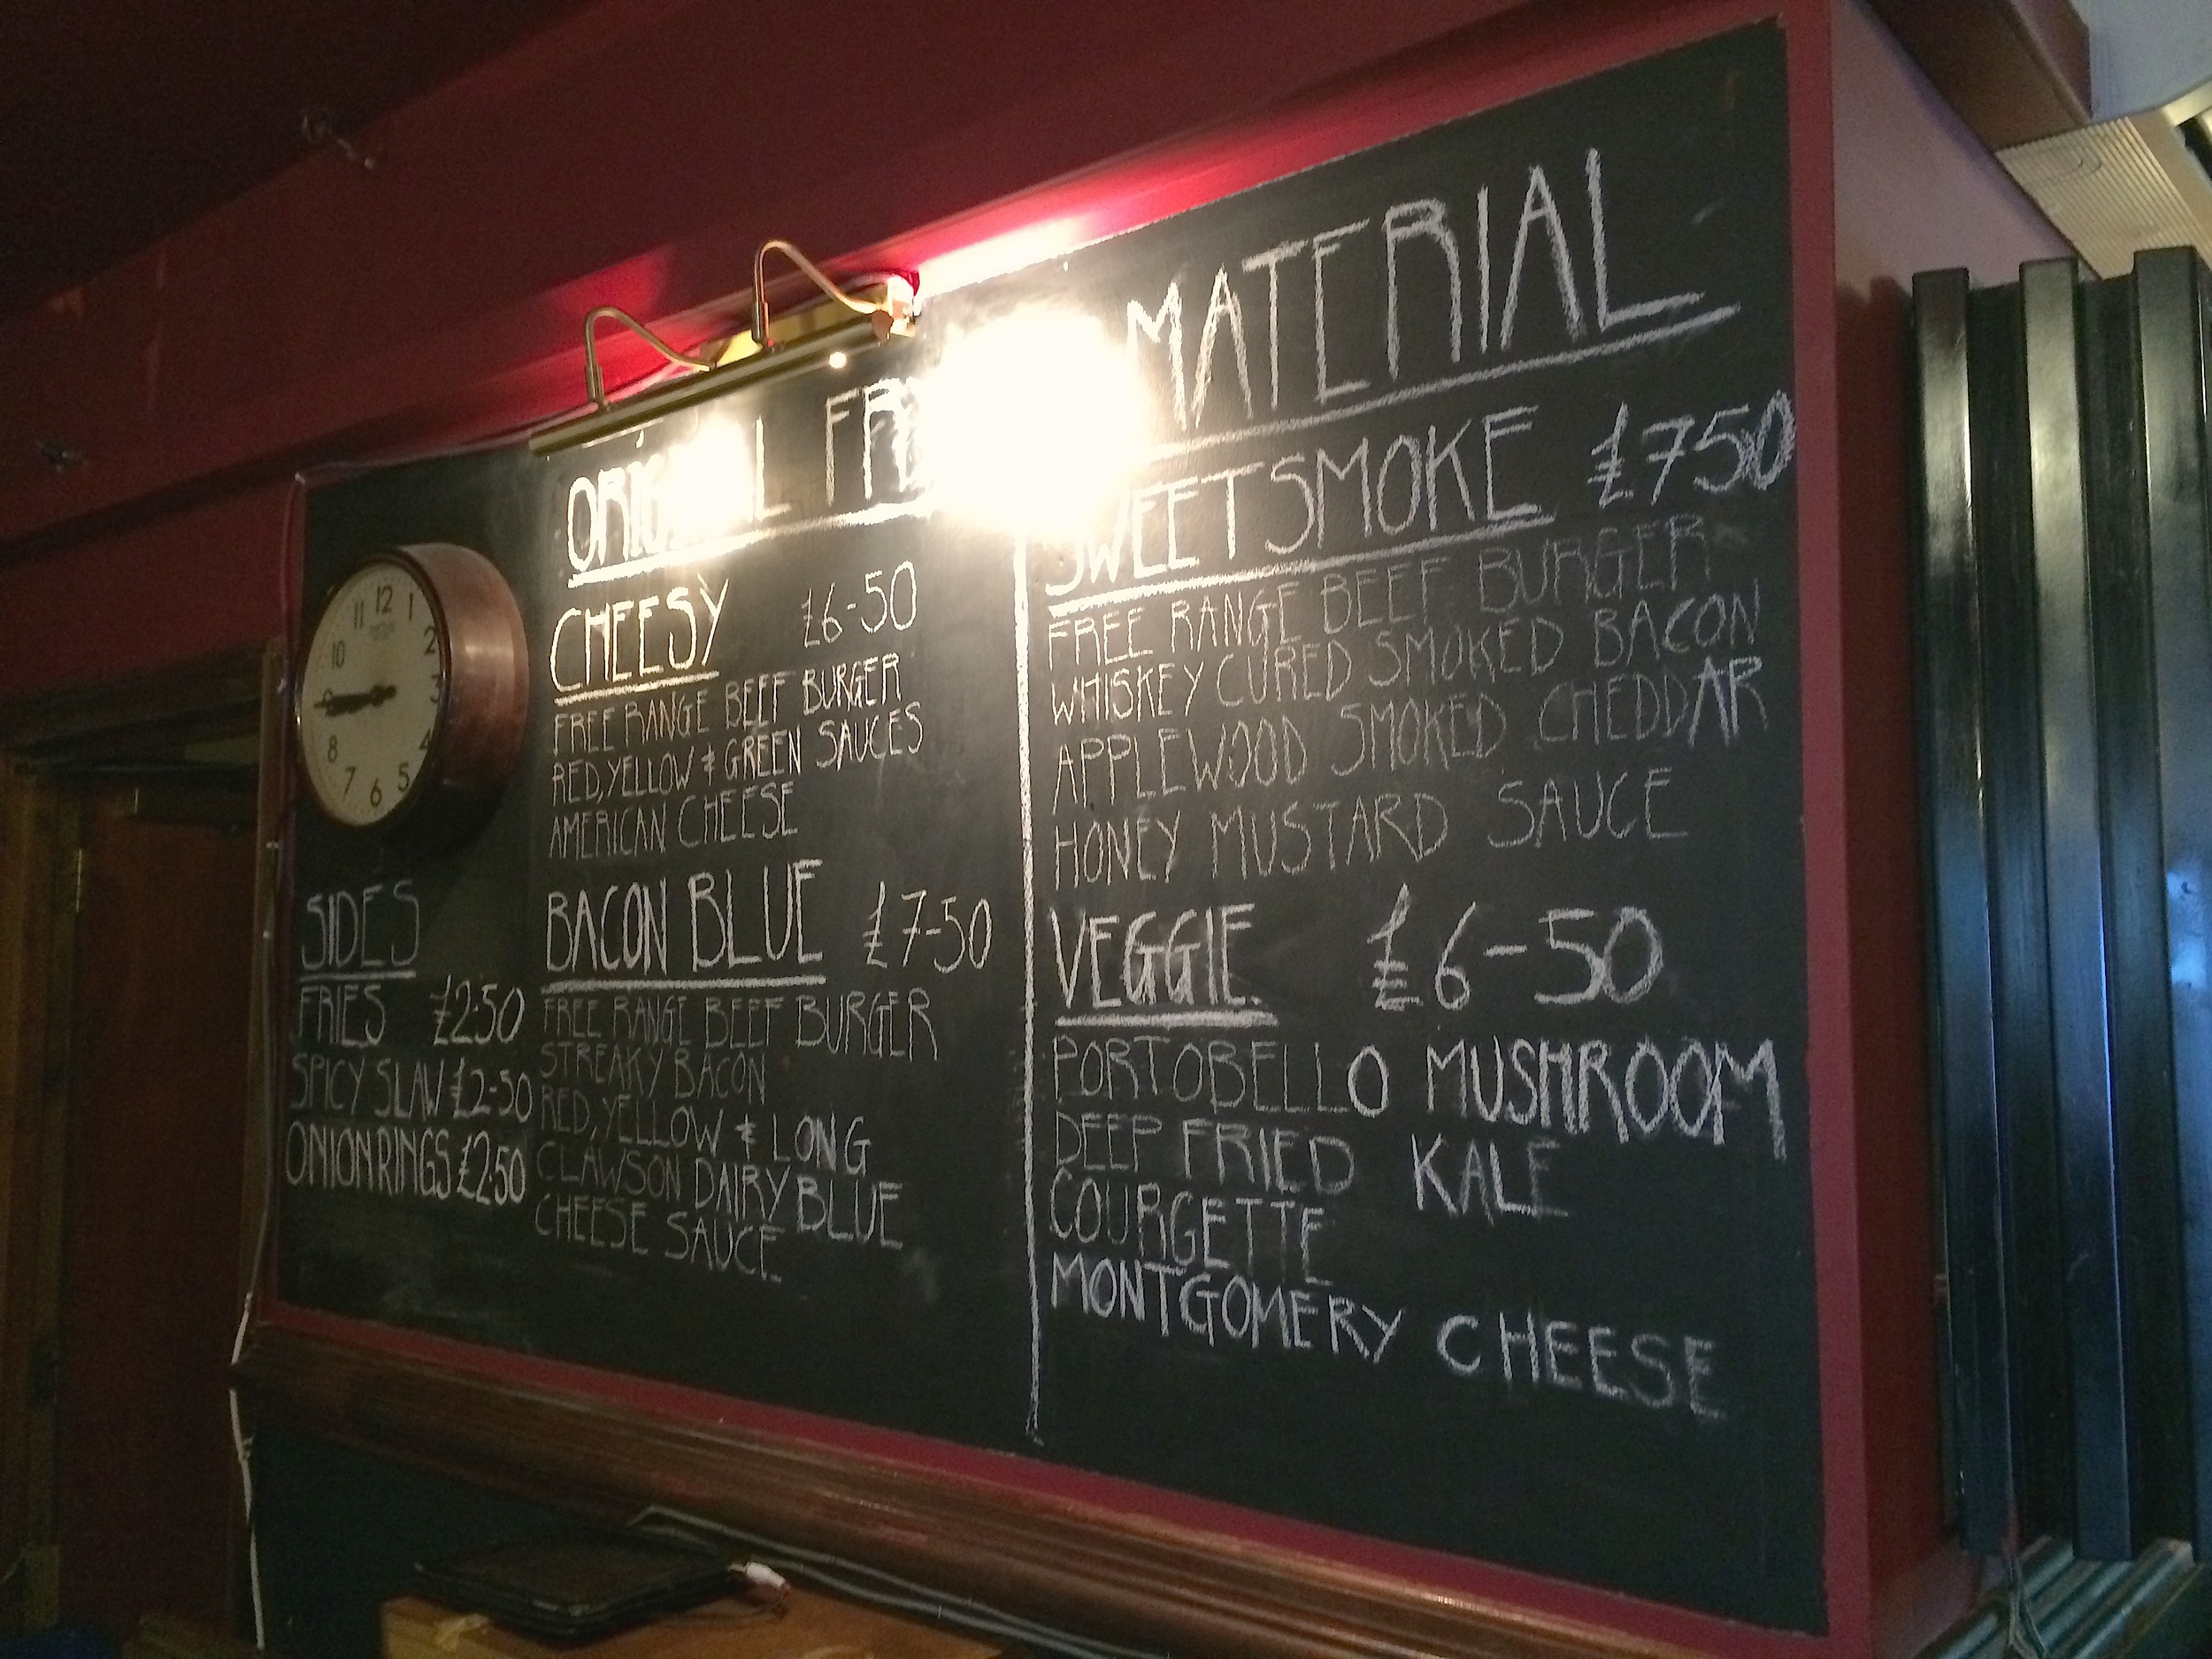 MATERIAL
12
1
2
3
4
5
6
7
8
10
11
SIDES
FRIES £2.50
SPICY SLAW £2-50
ONION RINGS £2.50
CHEESY £6-50
FREE RANGE BEEF BURGER
RED, YELLOW & GREEN SAUCES
AMERICAN CHEESE
BACON BLUE £7-50
FREE RANGE BEEF BURGER
STREAKY BACON
RED, YELLOW & LONG
CLAWSON DAIRY BLUE
CHEESE SAUCE
SWEET SMOKE £750
FREE RANGE BEEF BURGER
WHISKEY CURED SMOKED BACON
APPLEWOOD SMOKED CHEDDAR
HONEY MUSTARD SAUCE
VEGGIE £6-50
PORTOBELLO MUSHROOM
DEEP FRIED KALE
COURGETTE
MONTGOMERY CHEESE